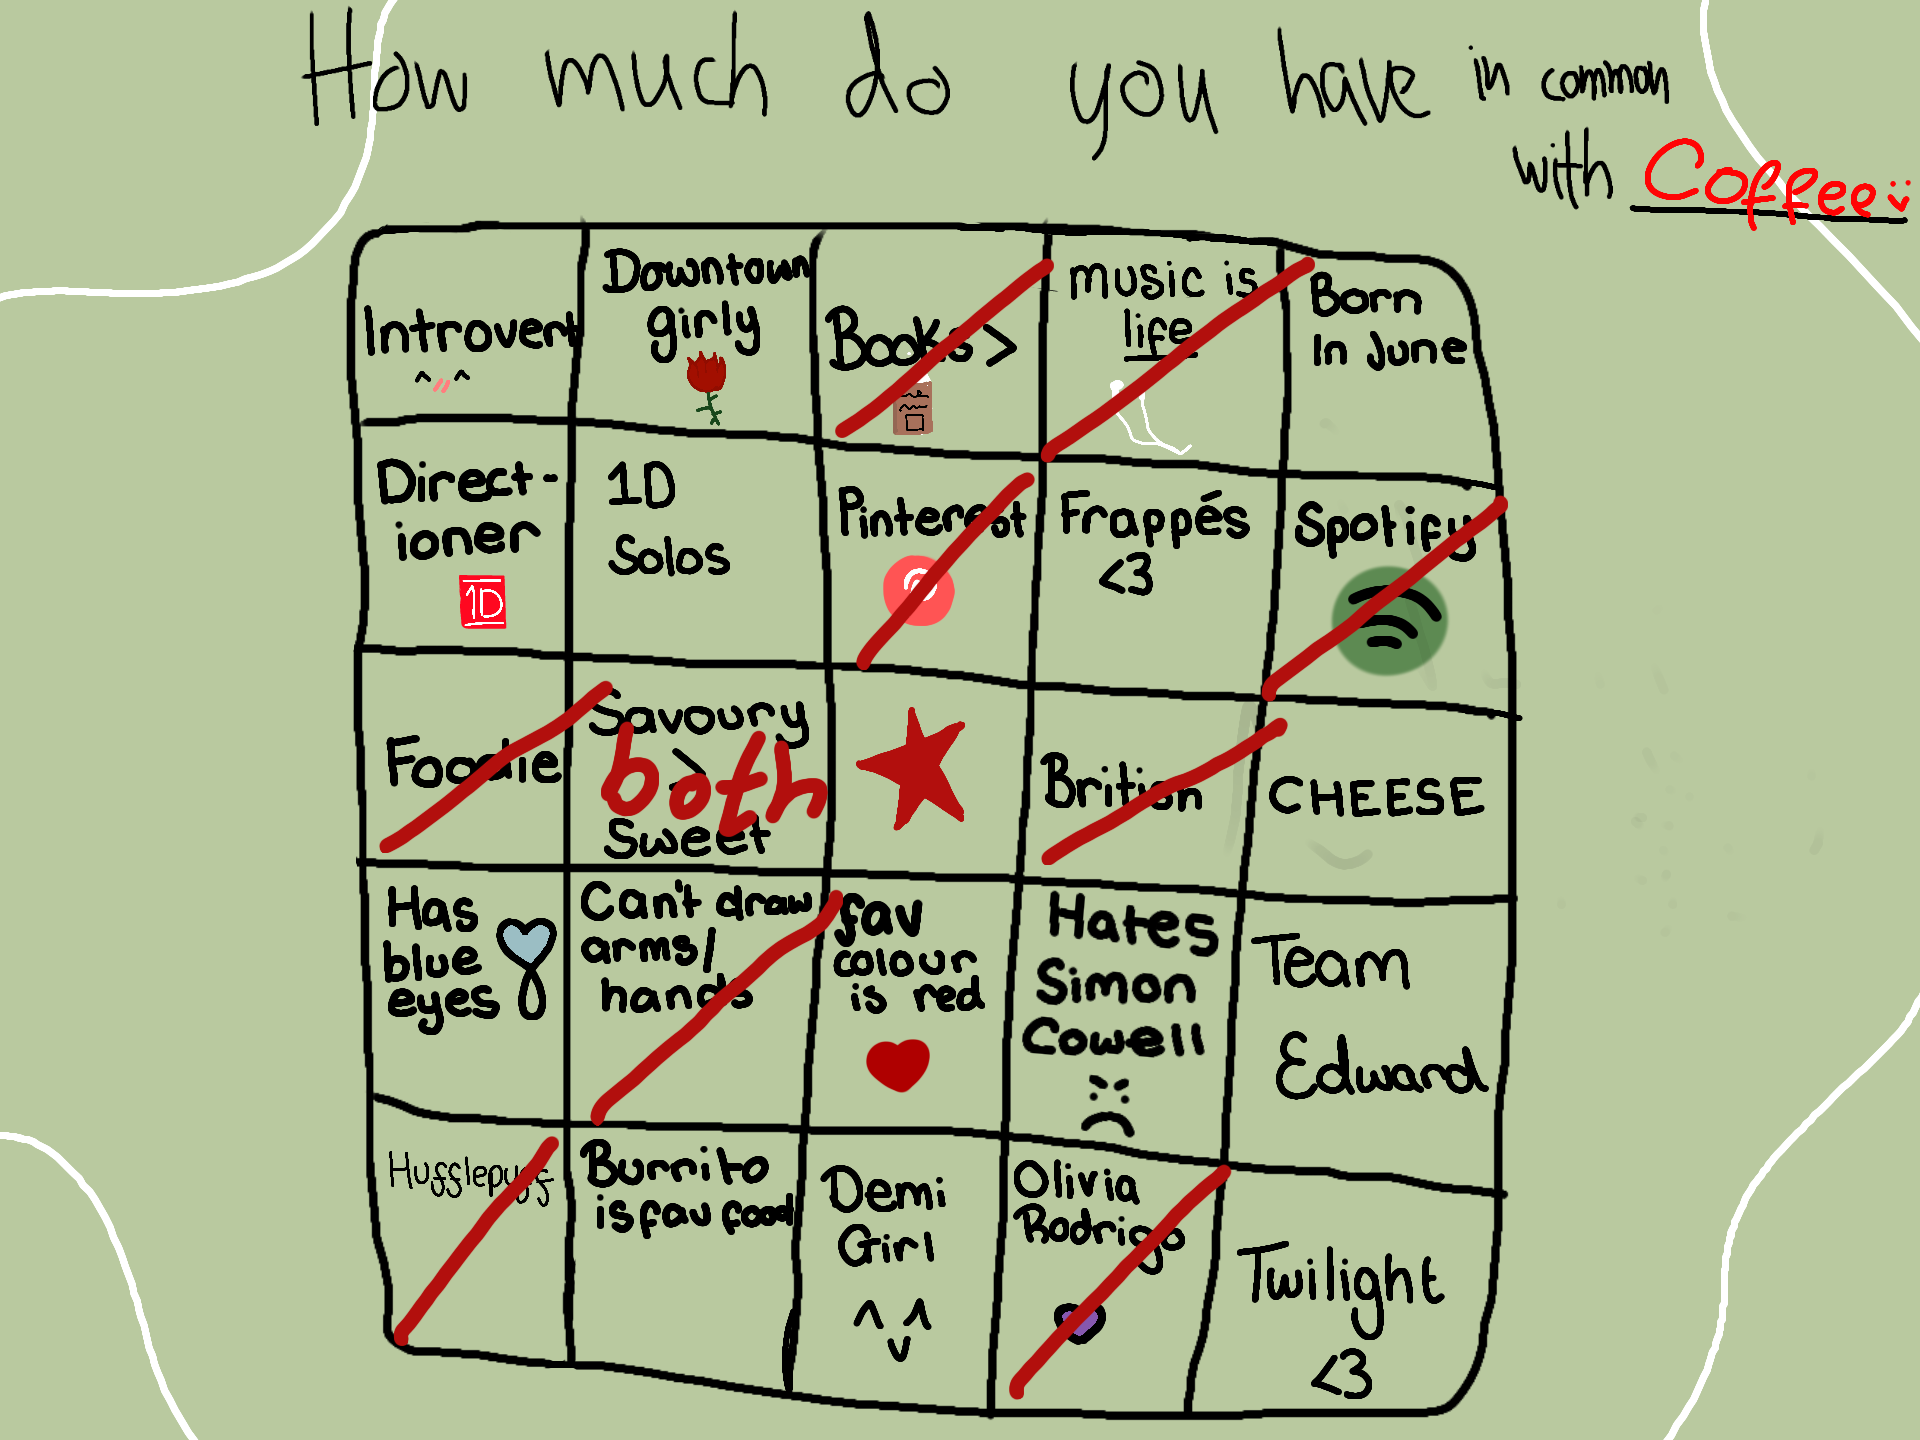 How much do you have in common
with Coffee:)
Introvert
^ ^
Downtown
girly
Books >
music is
life
Born
In June
Direct-
ioner
1D
1D
Solos
Pinterest
Frappés
<3
Spotify
Foodie
Savoury
>
Sweet
both
British
CHEESE
Has
blue
eyes
Can't draw
arms/
hands
fav
colour
is red
Hates
Simon
Cowell
Team
Edward
Hufflepuff
Burrito
is fav food
Demi
Girl
^ ^
v
Olivia
Rodrigo
Twilight
<3